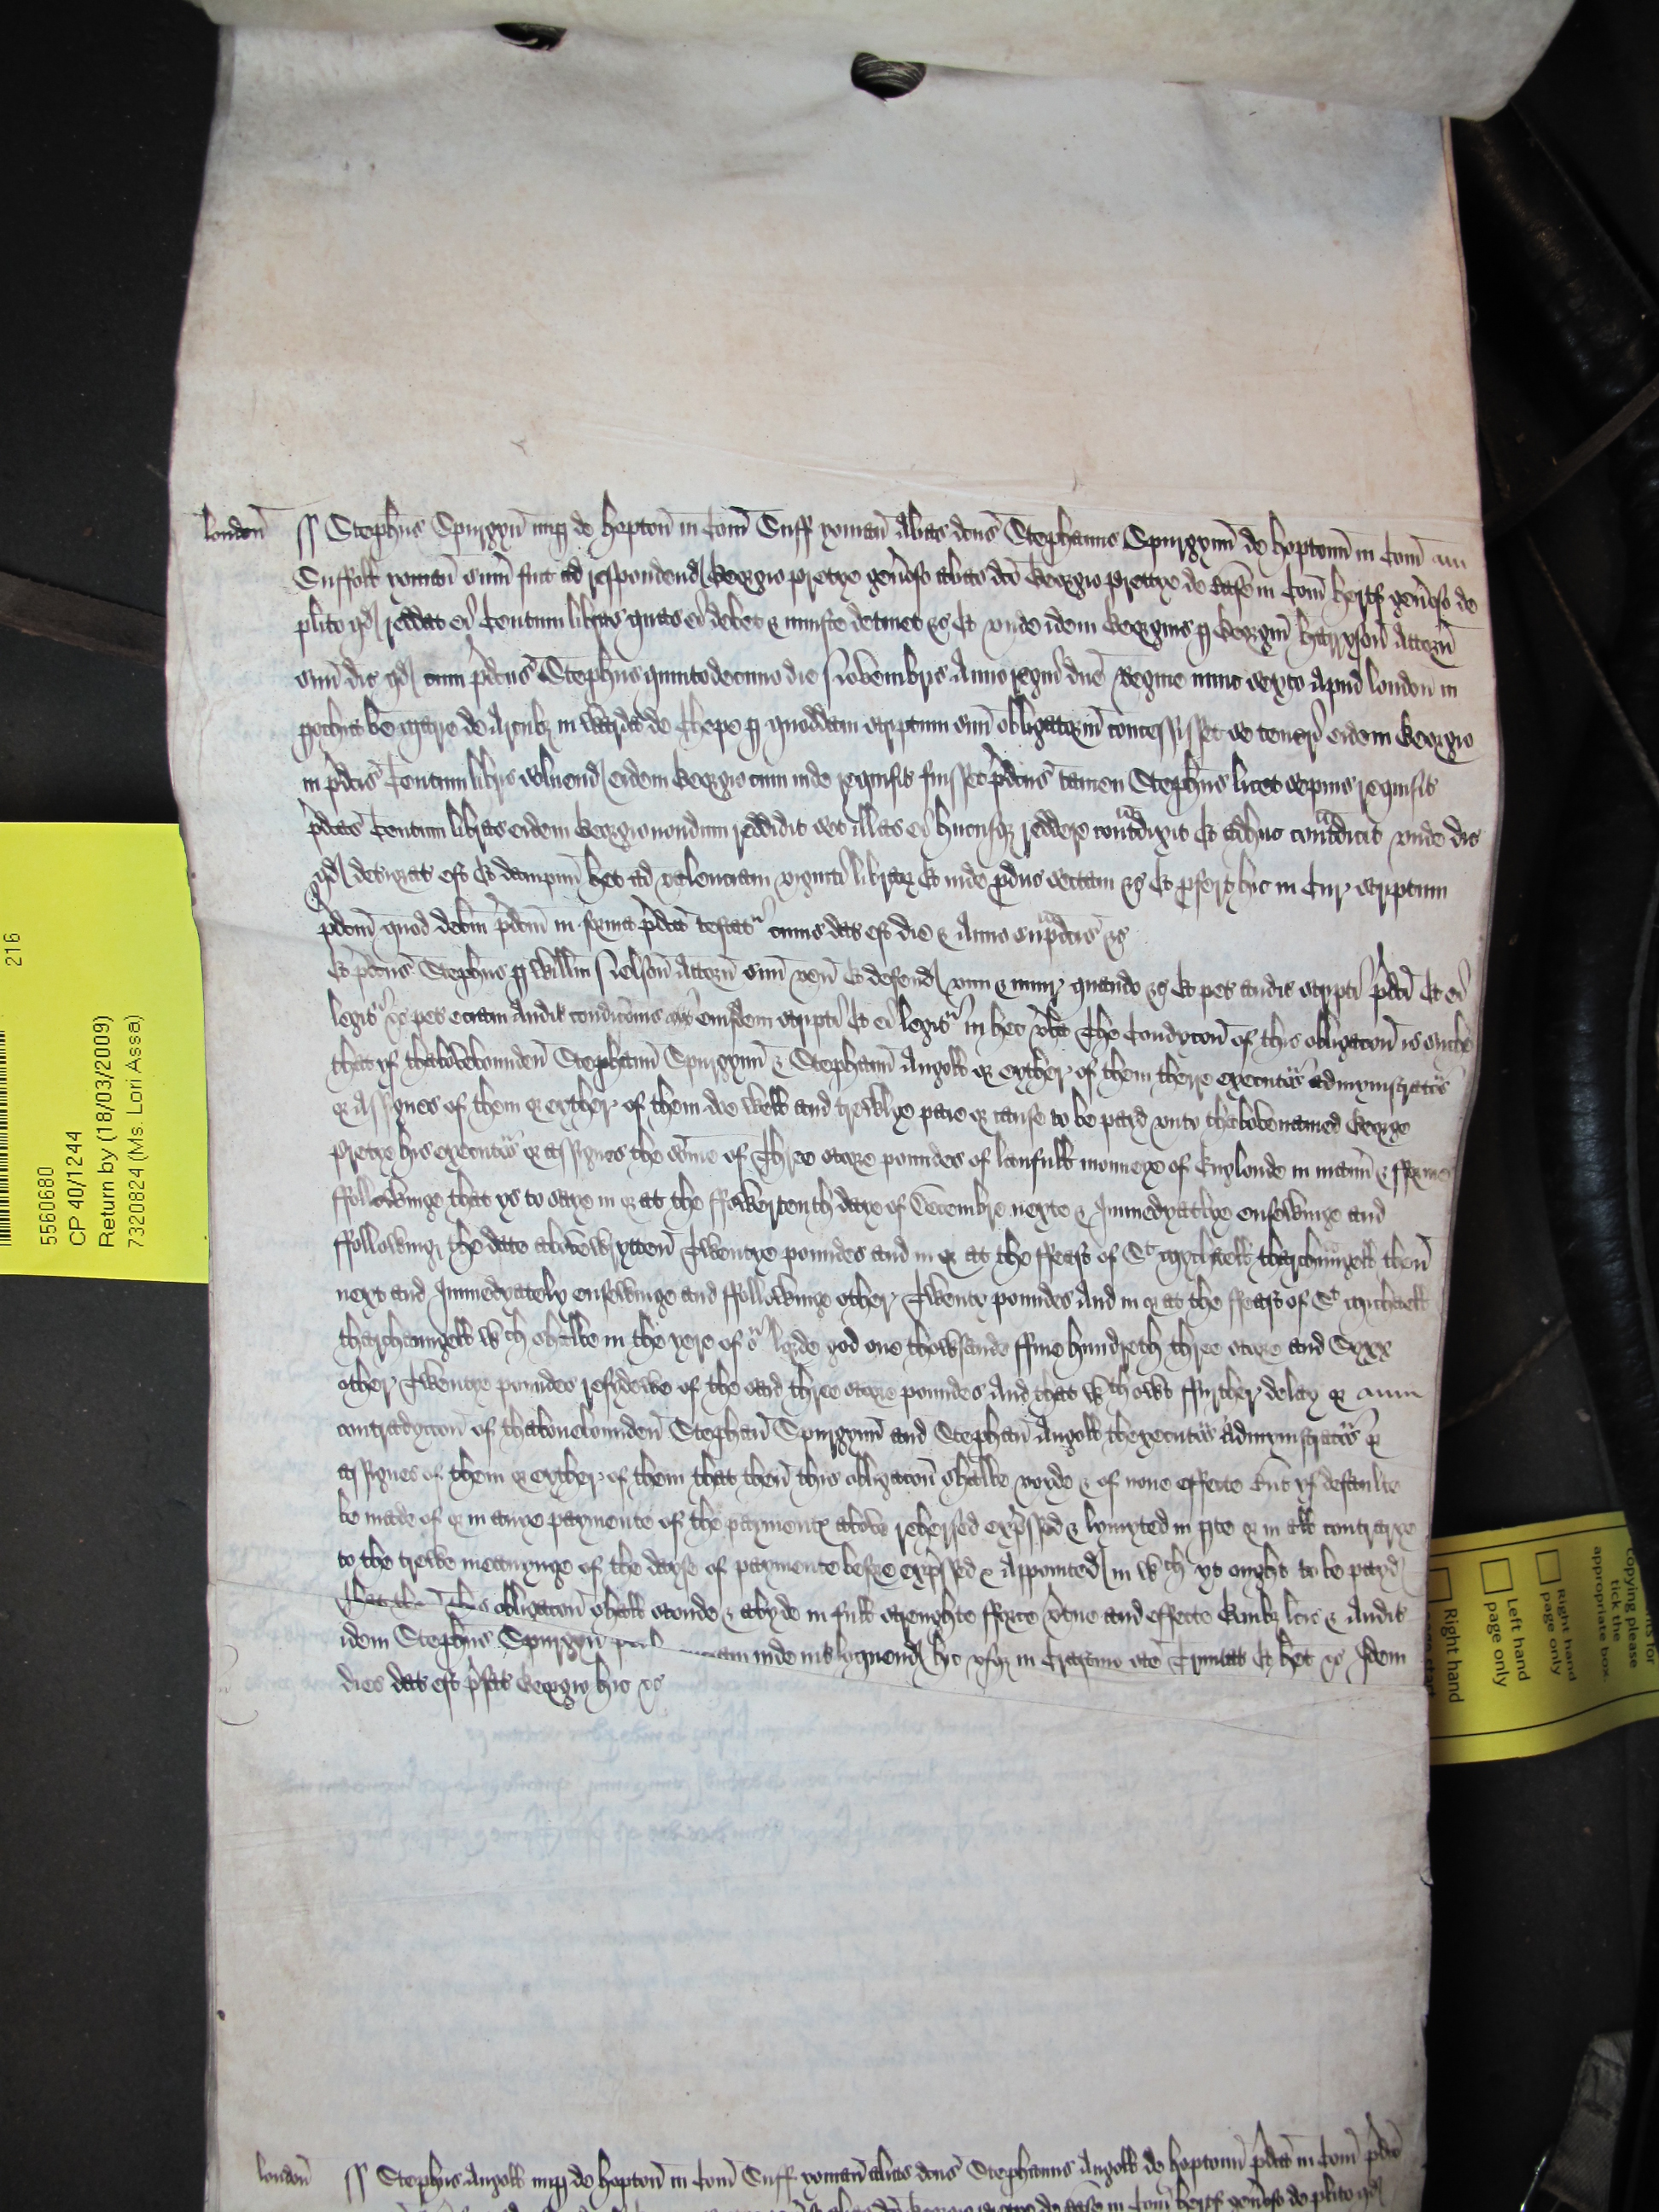 216
5560680
CP 40/1244
Return by (18/03/2009)
73208224 (Ms. Lori Assa)
london ss Stephus Spurgyn nup de hopton in Com Suff yoman Alias dcus Stephanus Spurgynn de hoptonn in Com
Suffolk yoman sum fuit ad respondend Georgio pretye genoso alias dco Georgio prettye de in Com hertf genoso de
plito qd reddat ei Centum libras quas ei debet & iniuste detinet &c Et unde idem Georgius p Georgiu harryson Attorn
suu dic qd cum pdcus Stephus quintodecimo die Novembris Anno regni dne Regine nunc sexto Apud london in
pochia be marie de Arcubz in Warda de Chepe p quoddam scriptum suu obligatoriu concessisset se teneri eidem Georgio
in pdcis Centum libris solvend eidem Georgio cum inde requisit fuisset pdcus tamen Stephus licet sepius requisit
pdcas Centum libras eidem Georgio nondum reddidit set illas ei hucusqz reddere contradixit Et adhuc contradicit unde dic
qd deteriorat est Et dampnu het ad valenciam viginti librar Et inde pduc sectam &c Et pfert hic in Cur scriptum
pdcm quod debitu pdcm in forma pdca testat cuius dat est die & Anno supradcis &c
Et pdcus Stephus p Willm Nelson Attorn suu ven Et defend vim & iniur quando &c Et pet audit scripti pdci Et ei
legit &c pet eciam Audit condicionis eiusdem scripti Et ei legit in hec vba The Condycon of this obligacon is suche
that yf thabovebounden Stephann Spurgynn & Stephann Angold or eyther of them there executors admynistrators
or Assignes of them or eyther of them doe well and trewlye paie or cause to be payd unto thabovenamed George
pretye his executors or assignes the some of Three score poundes of laufull monneye of Englonde in mann & fforme
ffollowinge that ys to saye in or at the ffowertenth daye of Decembre nexte & Immedyatlye ensewinge and
ffollowing the date abovewrytten Twentye poundes and in or at the ffeast of St mychaell tharchaungell then
next and Immedyately ensewinge and ffollowinge other Twenty poundes And in or at the ffeast of St michaell
tharchaungell wch shalbe in the yere of or lorde god one thowsande ffive hundreth three score and Syxe
other Twentye poundes resydewe of the said three score poundes And that wthowt ffurther delay or
contradyccon of thabovebounden Stephan Spurgynn and Stephan Angoll thexecutors Admynistrators or
assignes of them or eyther of them that then this obligacon shalbe voyde & of none effecte But yf defaulte
be made of or in anye paymente of the payments above rehersed expssed & lymyted in pte or in all contrarye
to the trewe meanynge of the dayse of paymente before expssed & Appointed in wch yt ought to be payd
That then This obligacon shall stonde & abyde in full strenghte fforce vtue and effecte Quibz lcis & Audit
idem Stephus Spurgyn inde intloquend hic usqz in Crastino sce Trinitat Et het &c Idem
dies dat est pfat Georgio hic &c
london ss Stephus Angoll nup de hopton in Com Suff yoman alias dcus Stephanus Angoll de hoptonn pdca in Com pdco
in Com hertf genoso de plito qd
copying please
tick the
appropriate box.
Right hand
page only
Left hand
page only
Right hand